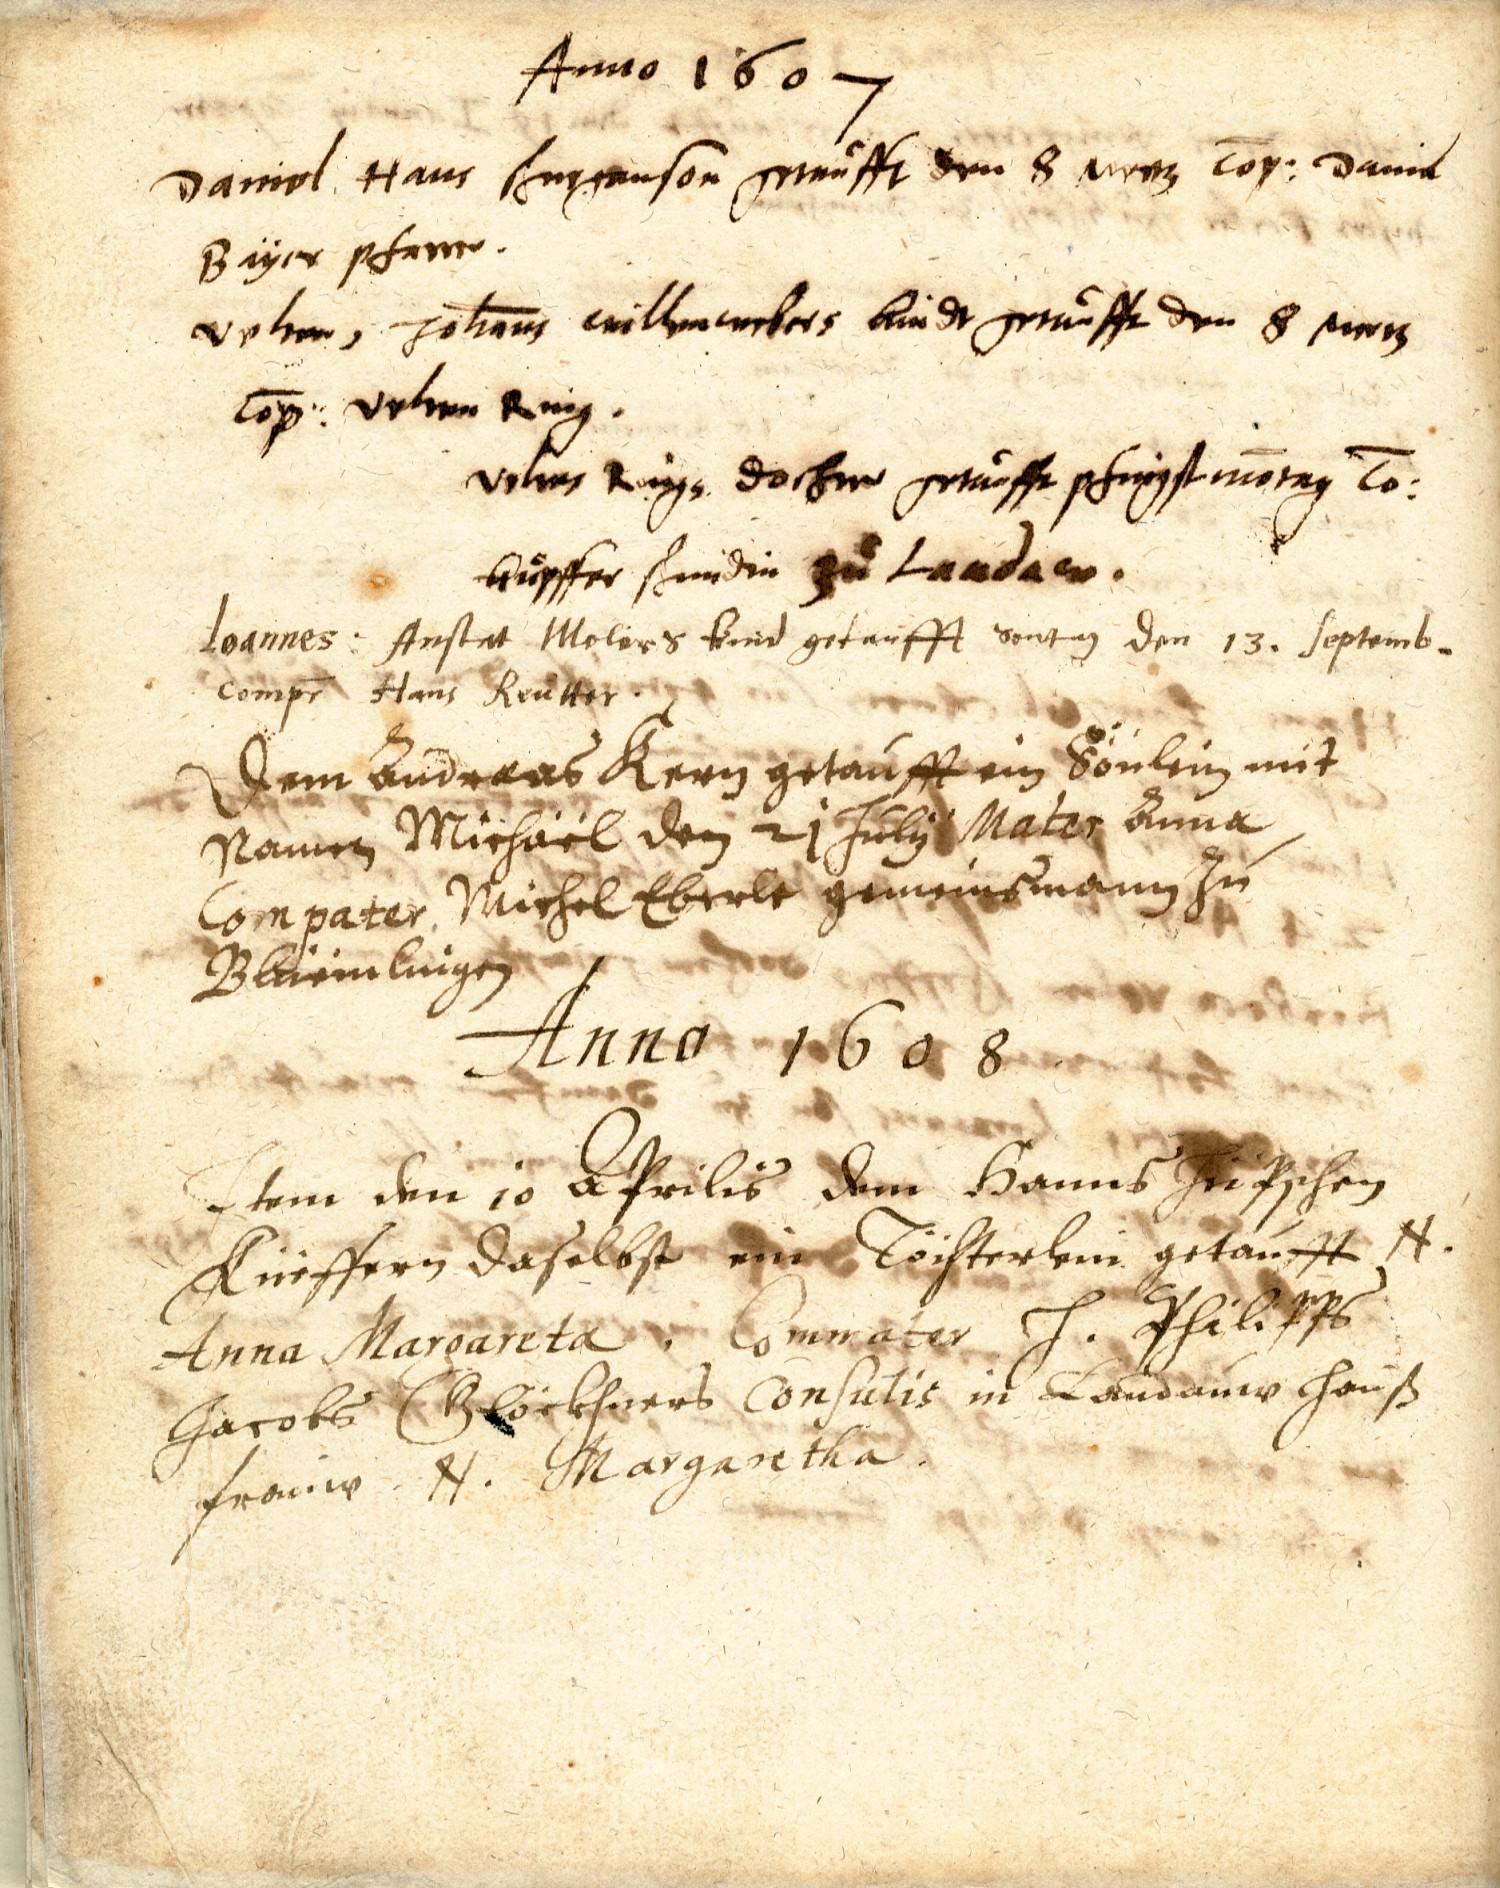 Anno 1607
Daniel Hans getaufft den 8 Mertz Cop: Daniel
Bayer pfarrer.
Velten, Johans kindt getaufft den 8 Mertz
Cop: Velten Ring.
Veltens Rings dochter getaufft pfingstmontag Co:
Küpffer zu Landaw.
Ioannes: Anstat Meliers kind getaufft sontag den 13. Septemb.
Comper Hans Reutter.
Dem Andreas Kern getaufft ein Sönlein mit
Namen Michäel den 21 July Mater Anna
Compater Michel Eberle gemeinsmann zu

Anno 1608
Item den 10 Aprilis dem Hanns
Küeffern daselbst ein Töchterlein getaufft N.
Anna Margareta. Commater H. Philipps
Jacobs Consulis in Landauw hauß
frauw N. Margaretha.